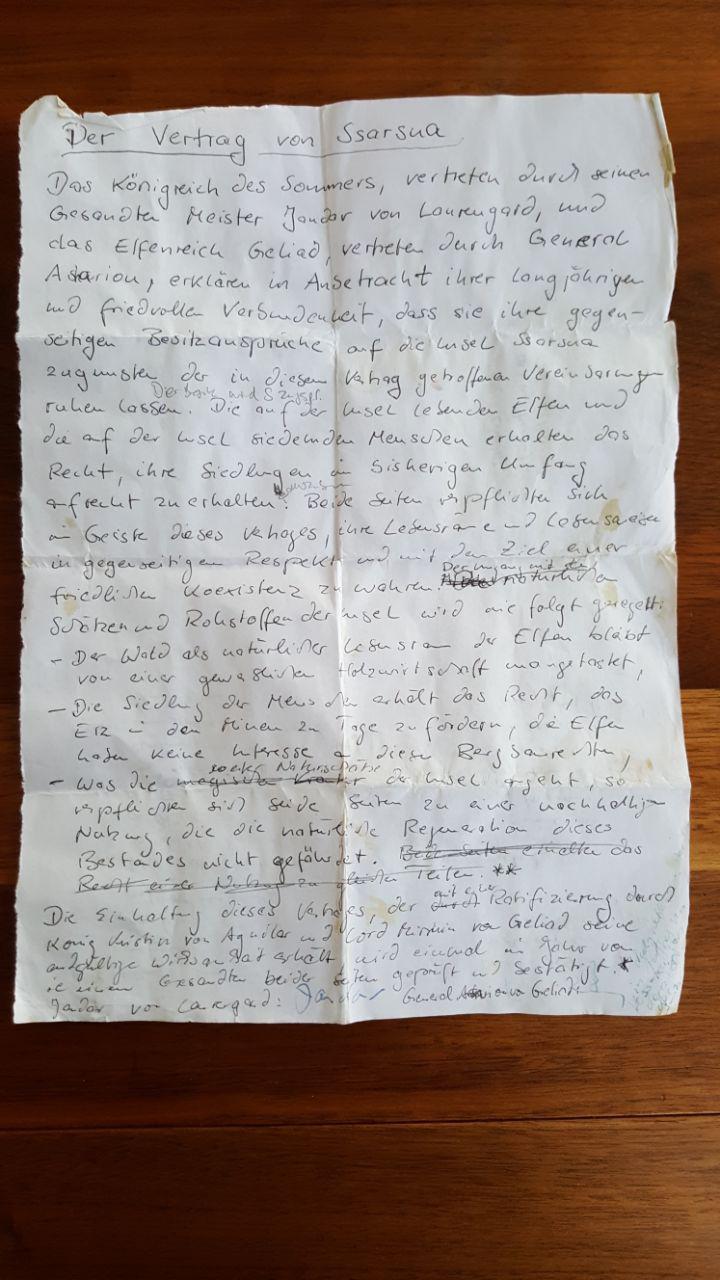 Der Vertrag von Ssarsua
Das Königreich des Sommers, vertreten durch seinen
Gesandten Meister Jandar von Laurengard, und
das Elfenreich Geliad, vertreten durch General
erklären in Anbetracht ihrer langjährigen
und friedvollen Verbundenheit, dass sie ihre gegen-
seitigen Besitzansprüche auf die Insel Ssarsua
zugunsten der in diesem Vertrag getroffenen Vereinbarungen
Der Besitz wird
ruhen lassen. Die auf der Insel lebenden Elfen und
die auf der Insel siedelnden Menschen erhalten das
Recht, ihre Siedlungen im bisherigen Umfang
aufrecht zu erhalten. Beide Seiten verpflichten sich
im Geiste dieses Vertrages, ihre Lebensräume und Lebensweisen
in gegenseitigen Respekt und mit dem Ziel einer
Der Umgang mit den
friedlichen Koexistenz zu wahren. natürlichen
Schätzen und Rohstoffen der Insel wird wie folgt geregelt:
- Der Wald als natürlicher Lebensraum der Elfen bleibt
von einer gewerblichen Holzwirtschaft unangetastet,
- Die Siedlung der Menschen erhält das Recht, das
Erz in den Minen zu Tage zu fördern, die Elfen
haben keine Interesse an diesen Bergbaurechten,
Naturschätze
- Was die magischen Kräuter der Insel angeht, so
verpflichten sich beide Seiten zu einer nachhaltigen
Nutzung, die die natürliche Regeneration dieses
Bestandes nicht gefährdet. Beide Seiten erhalten das
Recht einer Nutzung zu gleichen Teilen. **
mit einer
Die Einhaltung dieses Vertrages, der durch Ratifizierung durch
König Kristin von Aquilar und Lord von Geliad seine
endgültige Wirksamkeit erhält wird einmal im Jahr von
je einem Gesandten beider Seiten geprüft und bestätigt. *
Jandar von Laurengard: Jandar General von